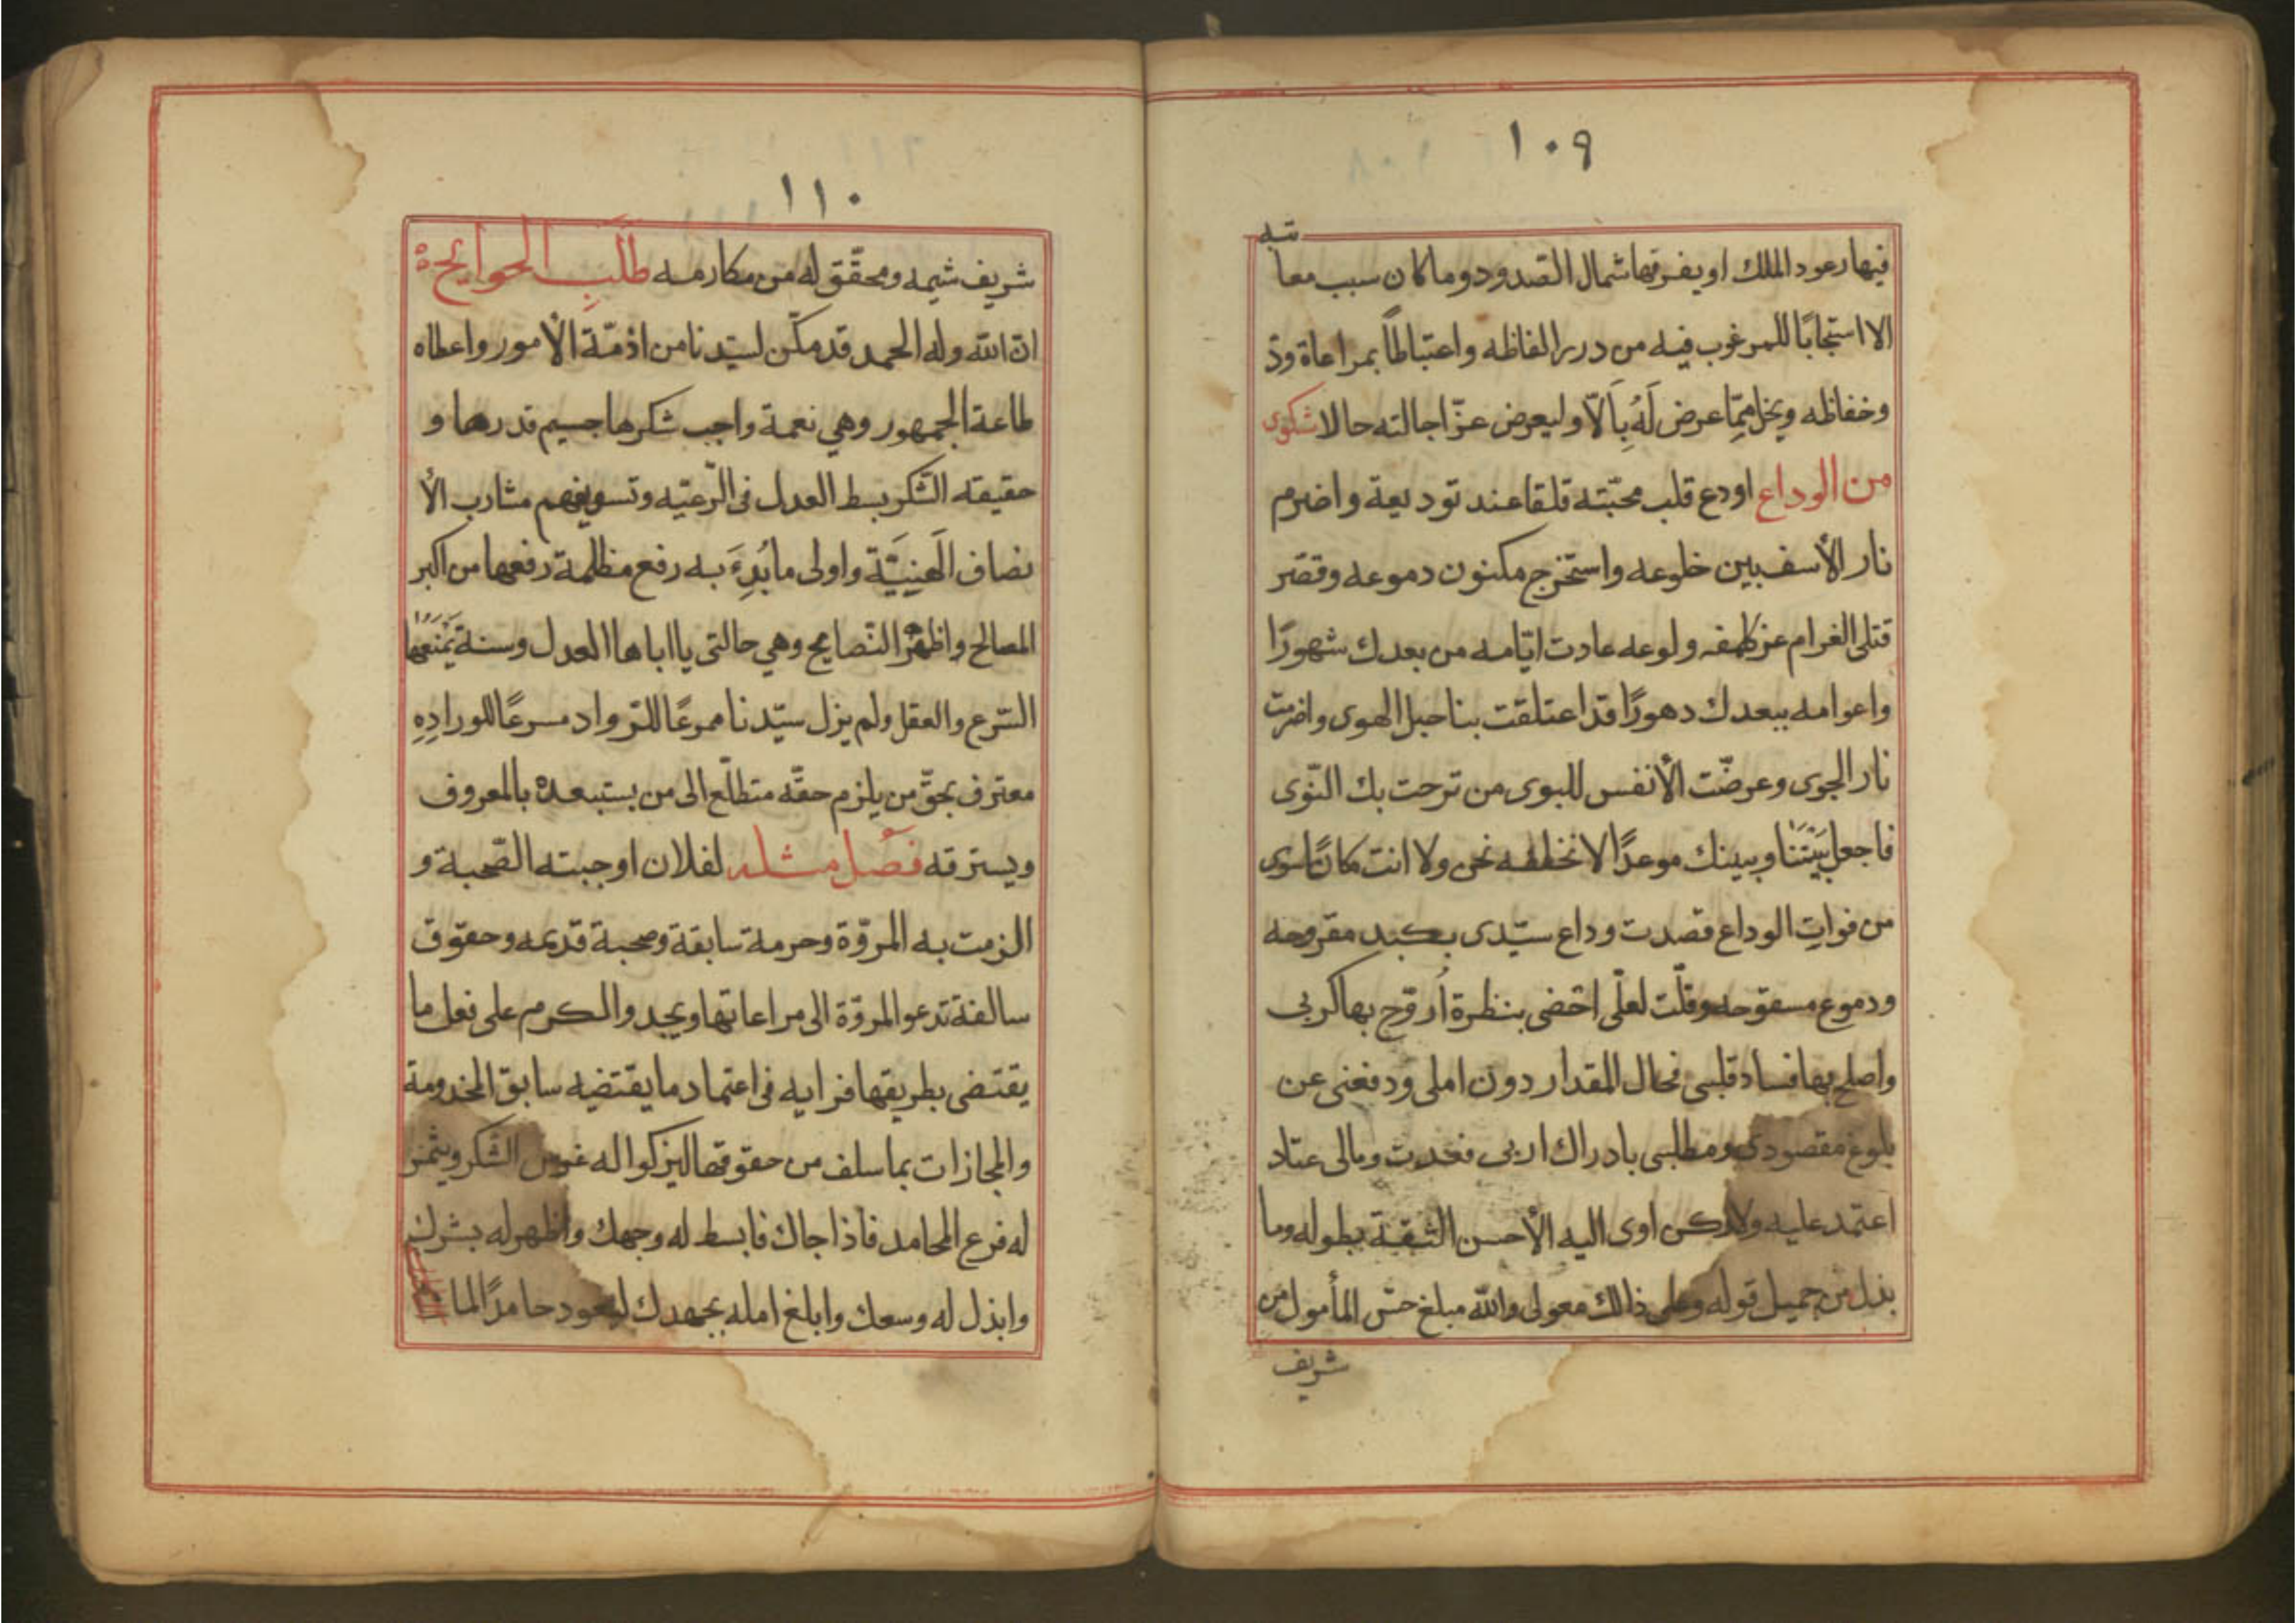 ١٠٩
فيها رعود الملك او يفرقها شمال الصّدود وما كان سبب معا
تبه
الا استجابًا للمرغوب فيه من درر الفاظه واعتباطاً بمراعاة ودّ
وخفاظه ويخل ممّا عرض لَهُ بِاَلاّ وليعرض عزّ اجالته حالا شكوى
من الوداع اودع قلب محبّته قلقا عند توديعة واضرم
نار الأسف بين خلوعه واستخرج مكنون دموعه وقصّر
قتلى الغرام عن كلهفه ولوعه عادت ايّامه من بعدك شهورًا
واعوامه ببعدك دهورًا قد اعتلقت بنا حبل الهوى واضرمت
نار الجوى وعرضّت الأنفس للبوى من ترحت بك النّوى
فاجعل بَيْنَنَا وبينك موعدًا لا نخلفه نحن ولا انت مكانًا سوى
من فواتِ الوداع قصدت وداع سيّدى بكبد مقروحه
ودموع مسفوحه وقلّت لعلّى احّضى بنظرة اُروّح بها كربى
واصلح بها فساد قلبى فحال المقدار دون املى ودفعنى عن
بلوغ مقصودى ومطلبى بادراك اربى فغدت ومالى عتاد
اعتمد عليه ولاركن اوى اليه الأحسن الثقة بطوله وما
بذل من جميل قوله وعلى ذالك معولى والله مبلغ حسّ المأمول من
شريف
١١٠
شريف شيمه ومحقّق له من مكارمه طَلَبِ الحوائج
انّ الله وله الحمد قد مكّن لسيّدنا من اذمّة الأمور واعطاه
طاعة الجمهور وهي نعمة واجب شكرها جسيم قدرها و
حقيقه الشّكر بسط العدل فى الرّعيّه وتسويغهم مشارب الأ
نصاف الَهنِيَّة واولى ما بُدِءَ به رفع مظلمة رفعها من اكبر
المصالح واظهر النّصايح وهي حالتى ياباها العدل وسنة يَمْنَعُها
الشّرع والعقل ولم يزل سيّدنا ممرعًا للتروّاد مسرعًا للورادِهِ
معترف بحقّ من يلزم حقّه متطلّع الى من يستبعده بالمعروف
ويسترقه فصل مثله لفلان اوجبته الصّحبة و
الزمت به المروّة وحرمة سابقة وصحبة قديمه وحقوق
سالفة تدعو المروّة الى مراعاتها ويجدوا الكرم على فعل ما
يقتضى بطريقها فرايه فى اعتماد ما يقتضيه سابق المخدومة
والمجازات بما سلف من حقوقها ليزكوا له غرس الشّكر ويثمر
له فرع المحامد فاذا جاك فابسط له وجهك واظهر له بشرك
وابذل له وسعك وابلغ امله بجهدك ليعود حامدًا لما